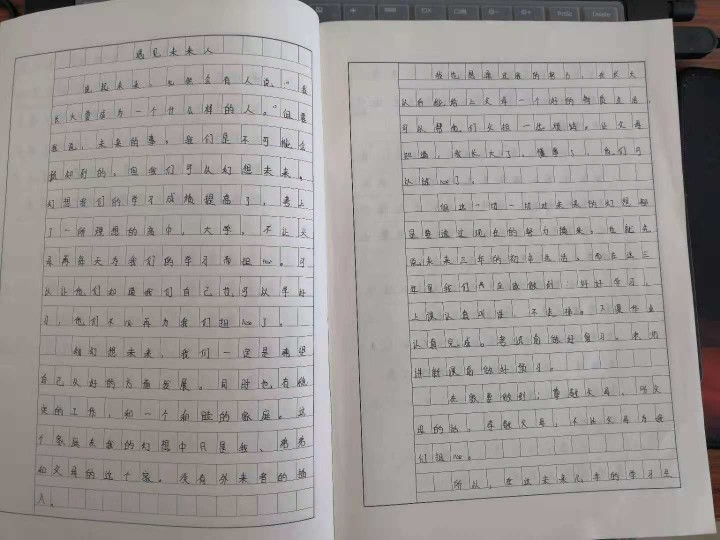 遇见未来人
说起未来，也许会有人说，“我
长大要成为一个什么样的人。”但要
我说，未来的事，我们是不可能会
提知到的。但我们可以幻想未来。
幻想我们的学习成绩提高了，考上
了一所理想的高中、大学。不让父
母再每天为我们的学习而担心。可
以让他们知道我们自己也可以学好
习，他们不用再为我们担心了。
幻想未来，我们一定是希望
自己以好的方面发展。同时也有稳
定的工作，和一个和睦的家庭。这
个家庭在我的幻想中只是我、弟弟
和父母的这个家。没有外来者的插
入。
我也想通过我的努力，在长大
以后能给上父母一个好的物质生活，
可以替他们分担一些烦恼。让父母
知道，我长大了，懂事了，他们可
以放心了。
但这一切一切对未来的幻想都
是要通过现在的努力得来。也就是
说未来三年的初中生活。而在这三
年里我们应该做到：好好学习，
上课认真听讲，不走神。下课作业
认真完成。考试前做好复习。老师
讲新课前做好预习。
在家要做到：尊敬父母，听父
母的话，孝敬父母，不让父母为我
们担心。
所以，在这未来几年的学习生